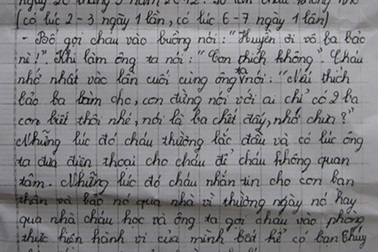 (có lúc 2-3 ngày 1 lần, có lúc 6-7 ngày 1 lần)
- Bố gọi cháu vào buồng nói: "Huyền ơi vô ba bảo
ni!". Khi làm ông ta nói: "Con thích không". Cháu
nhớ nhất vào lần cuối cùng ông nói: "Nếu thích
bảo ba làm cho, con đừng nói với ai chỉ có 2 ba
con biết thôi nhé, nói là ba chết đấy, nhớ chưa?"
Những lúc đó cháu thường lắc đầu và có lúc ông
ta đưa điện thoại cho cháu để cháu không quan
tâm. Những lúc đó cháu nhắn tin cho con bạn
thân và bảo nó qua nhà vì thường ngày nó hay
qua nhà cháu học và ông ta gọi cháu vào phòng
thực hiện hành vi của mình bất kể có bạn Thủy